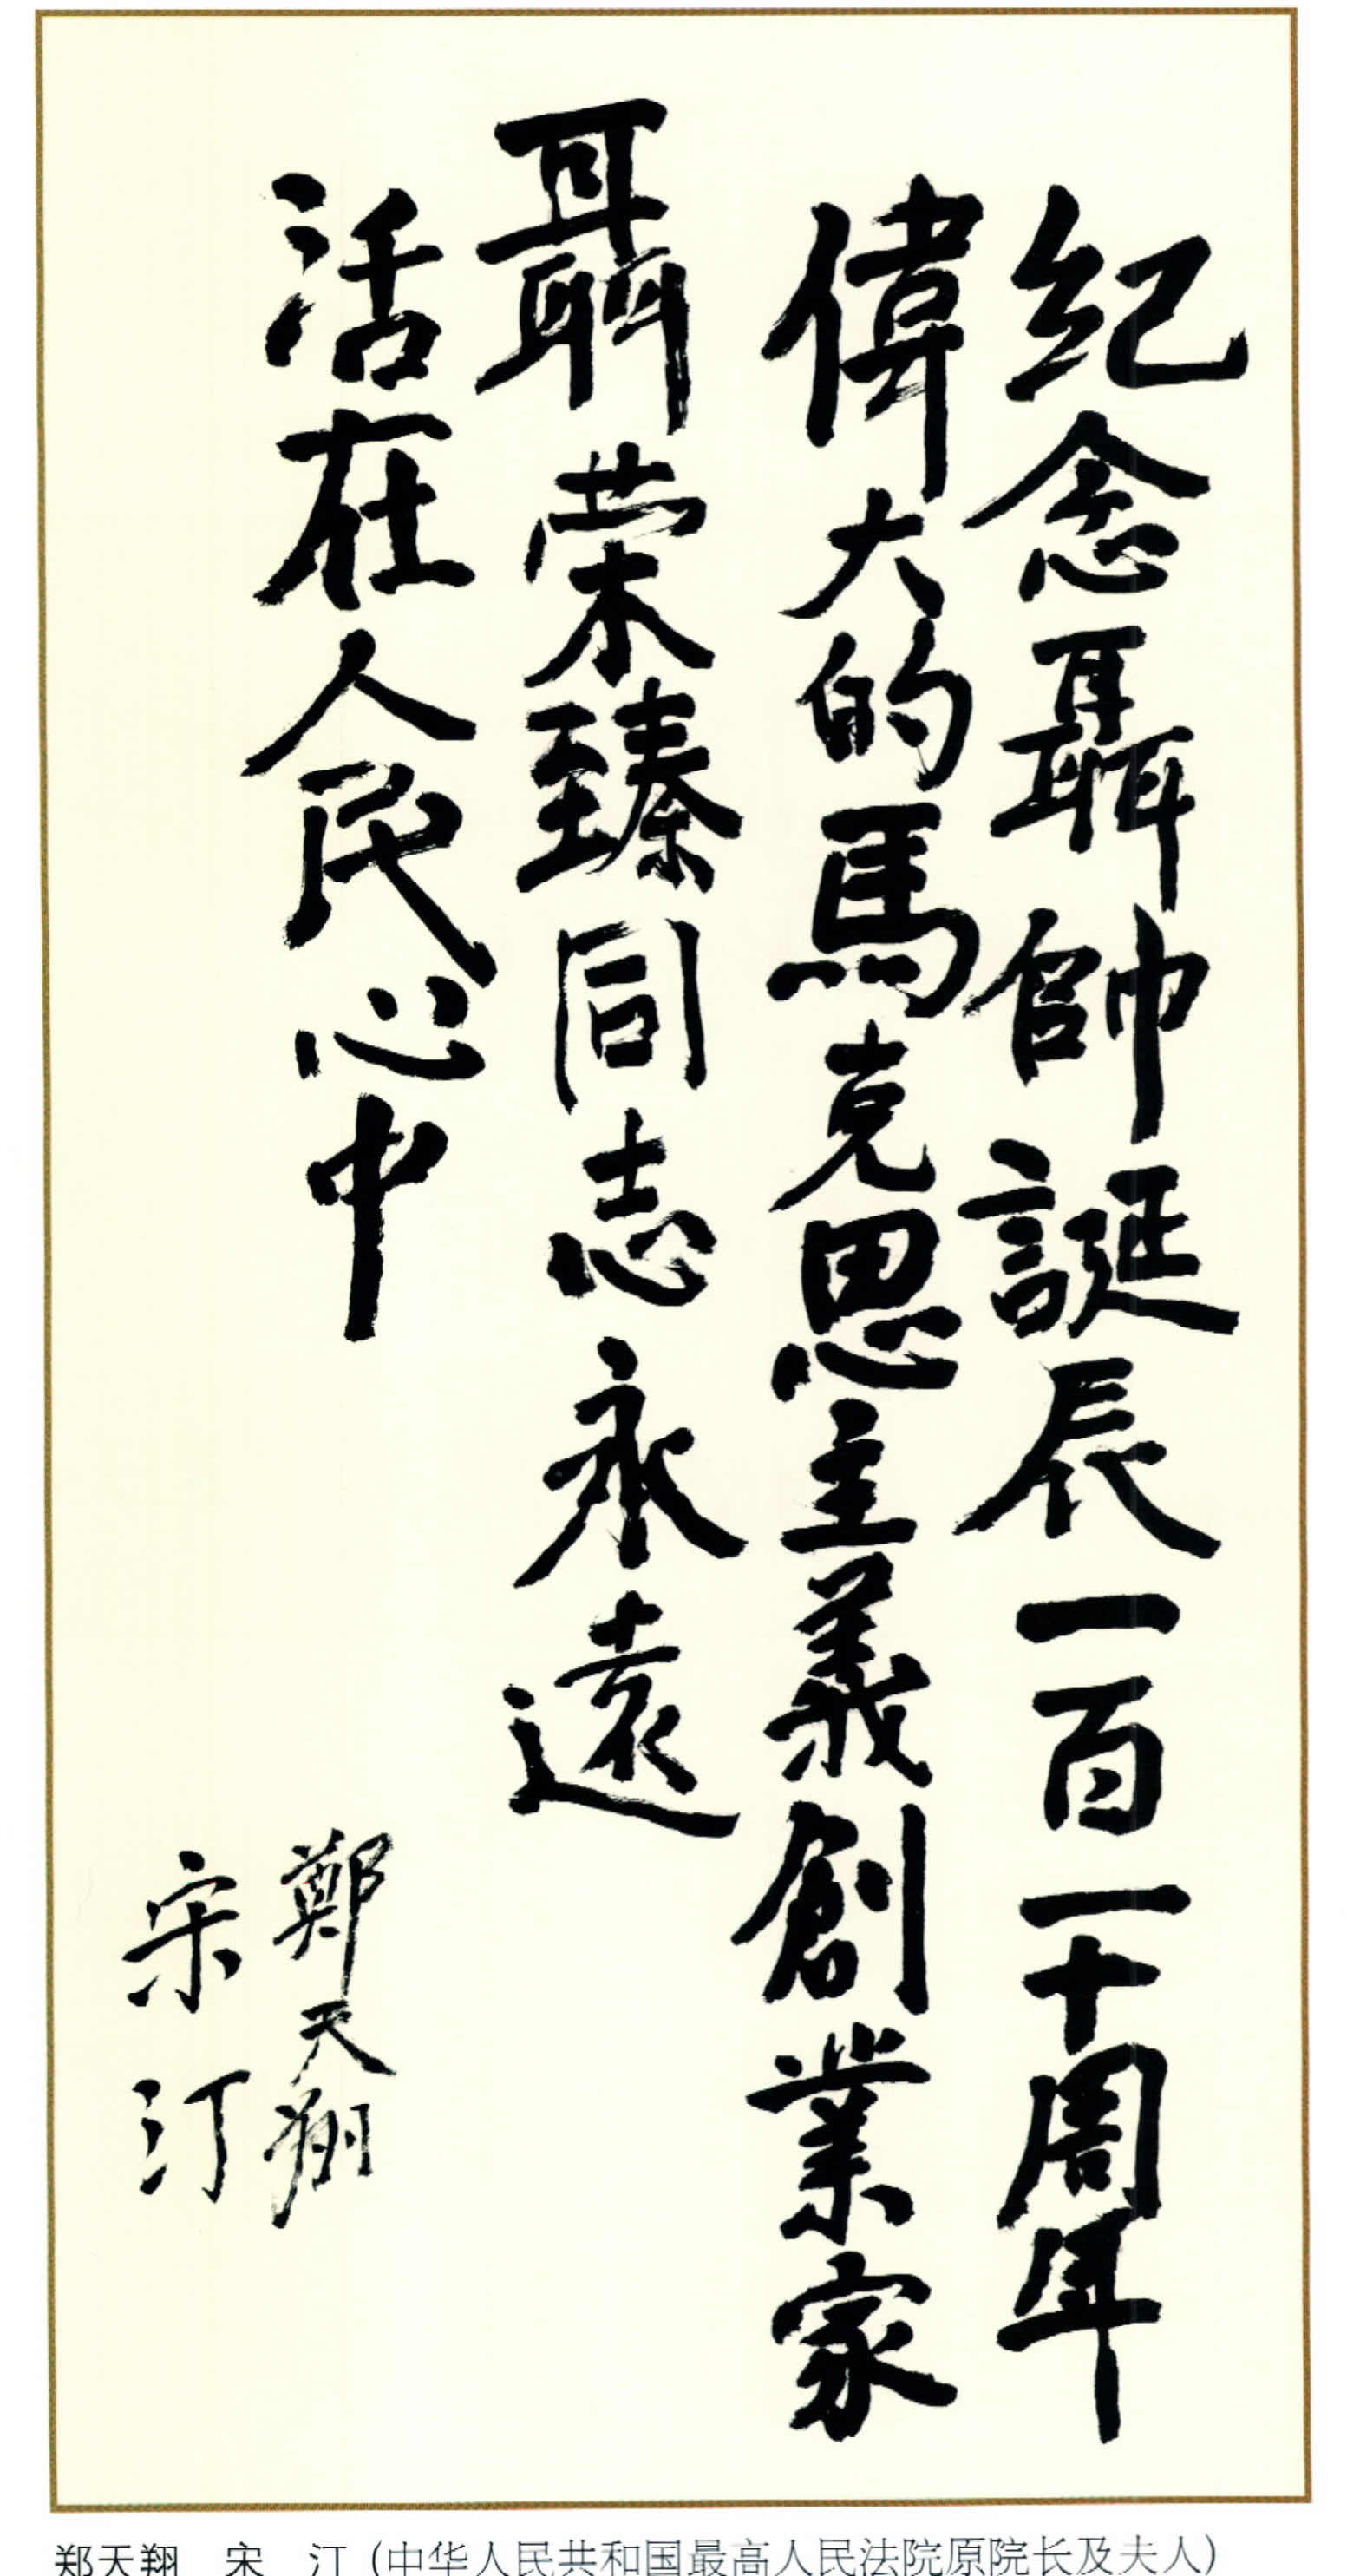 紀念聶帥誕辰一百一十周年
偉大的馬克思主義創業家
聶荣臻同志永遠
活在人民心中
鄭天翔
宋汀
郑天翔 宋 汀(中华人民共和国最高人民法院原院长及夫人)